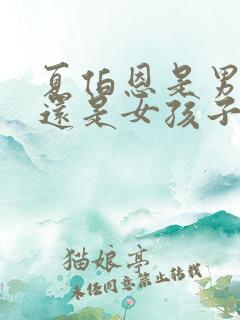 夏伯恩是男
還是女孩子
猫娘亭
未任同意禁止转载